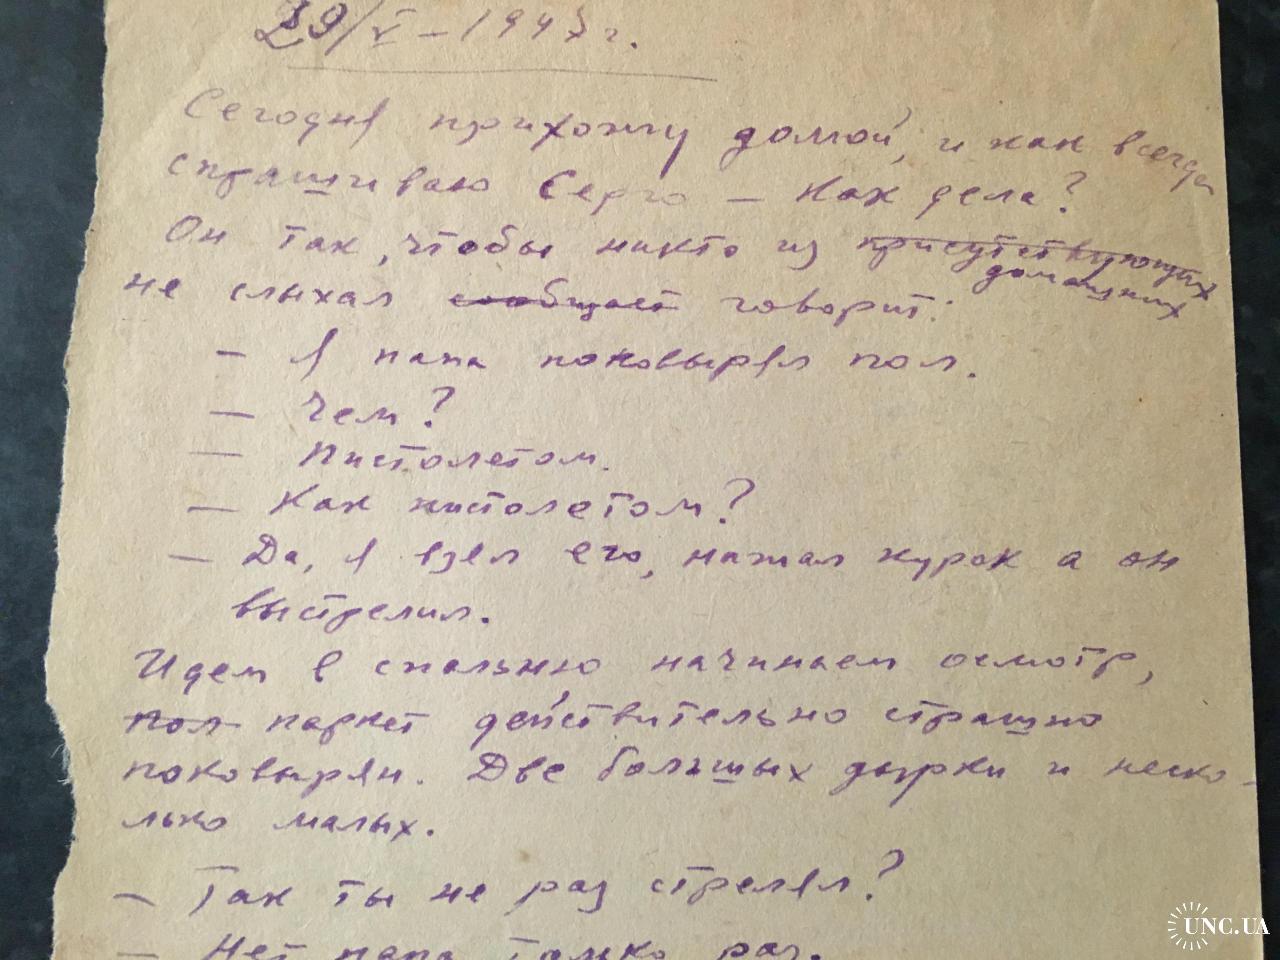 29/V – 1947 г.
Сегодня прихожу домой, и как всегда
спрашиваю Серго – Как дела?
Он так, чтобы никто из присутствующих
домашних
не слыхал сообщает говорит:
– Я папа поковырял пол.
– Чем?
– Пистолетом.
– Как пистолетом?
– Да, я взял его, нажал курок а он
выстрелил.
Идем в спальню начинаем осмотр,
пол паркет действительно страшно
поковырян. Две больших дырки и неско-
лько малых.
– Так ты не раз стрелял?
– Нет папа только раз.
UNC.UA